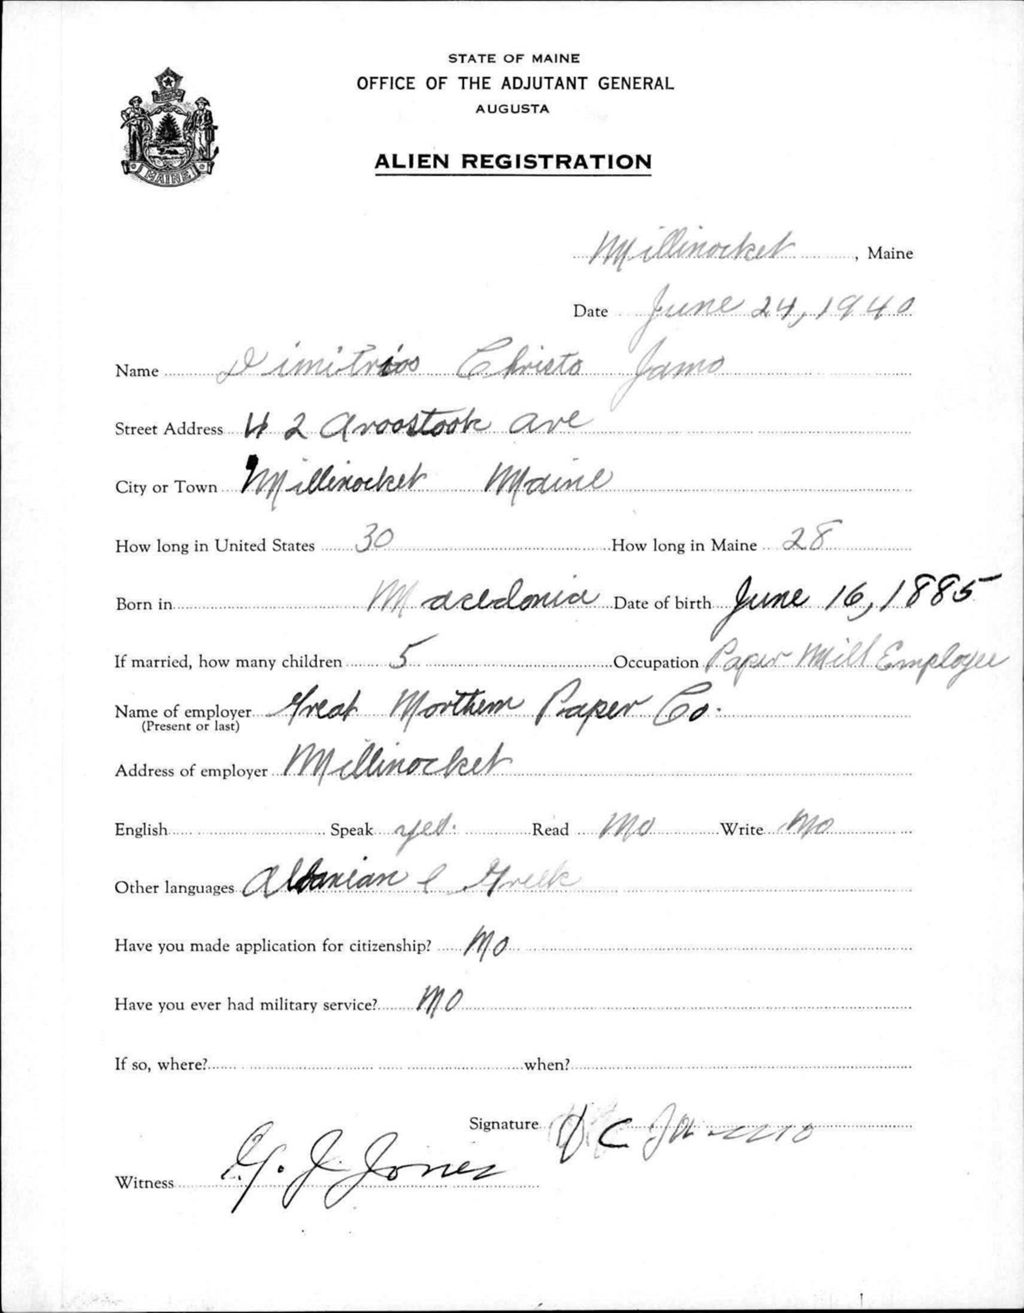 STATE OF MAINE
OFFICE OF THE ADJUTANT GENERAL
AUGUSTA
ALIEN REGISTRATION
MAINE
Millinocket, Maine
Date June 24, 1940
Name Dimitrios Christo Jamo
Street Address 42 Aroostook Ave
City or Town Millinocket Maine
How long in United States 30 How long in Maine 28
Born in Macedonia Date of birth June 16, 1885
If married, how many children 5 Occupation Paper Mill Employee
Name of employer Great Northern Paper Co.
(Present or last)
Address of employer Millinocket
English Speak yes. Read No Write No
Other languages Albanian & Greek
Have you made application for citizenship? No
Have you ever had military service? No
If so, where? when?
Signature D C Jamo
Witness G. J. Jones